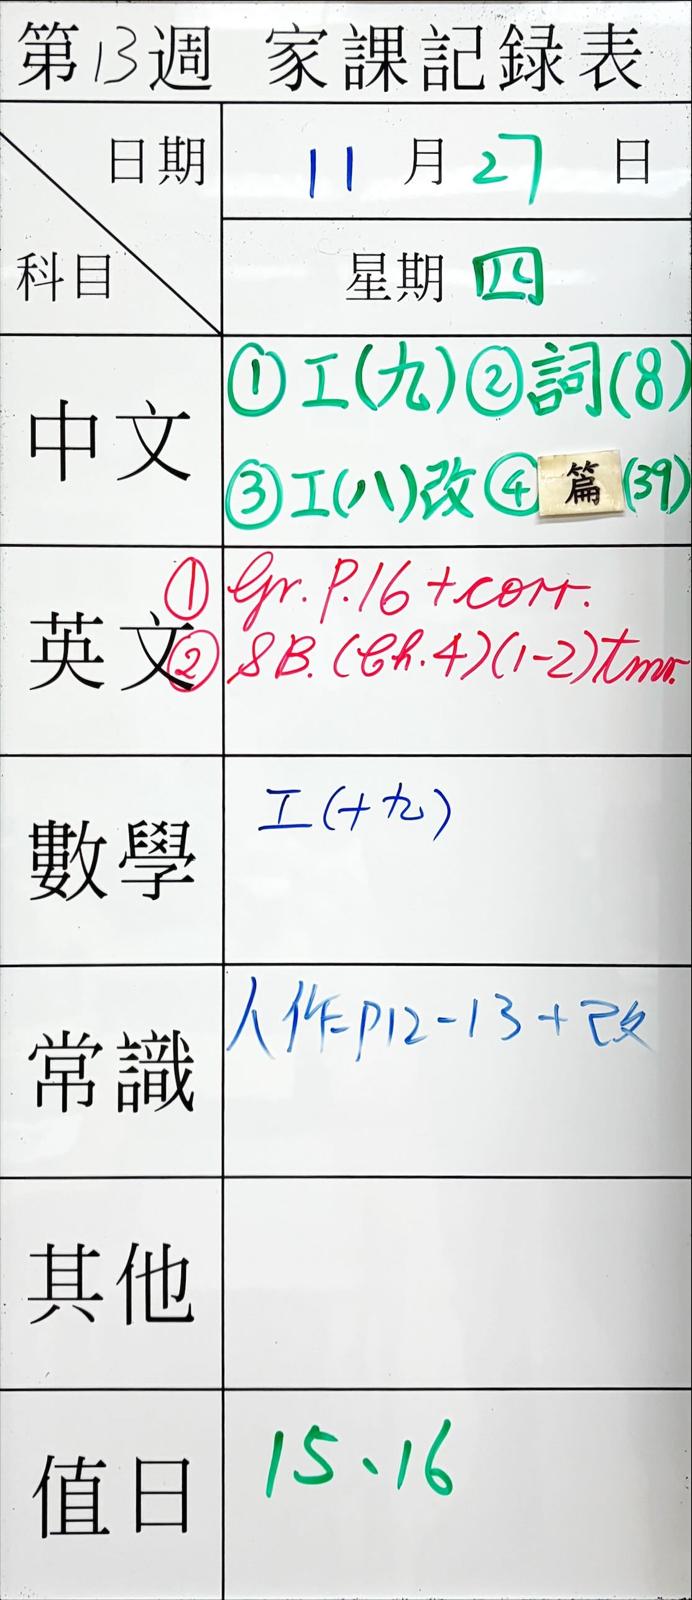 第13週 家課記録表
日期 11 月 27 日
科目 星期 四
中文 ①工(九)②詞(8)
③工(八)改④篇(39)
英文 ① Gr. P.16 + corr.
② SB. (Ch.4)(1-2)tmr.
數學 工(十九)
常識 人作P12-13+改
其他
值日 15、16